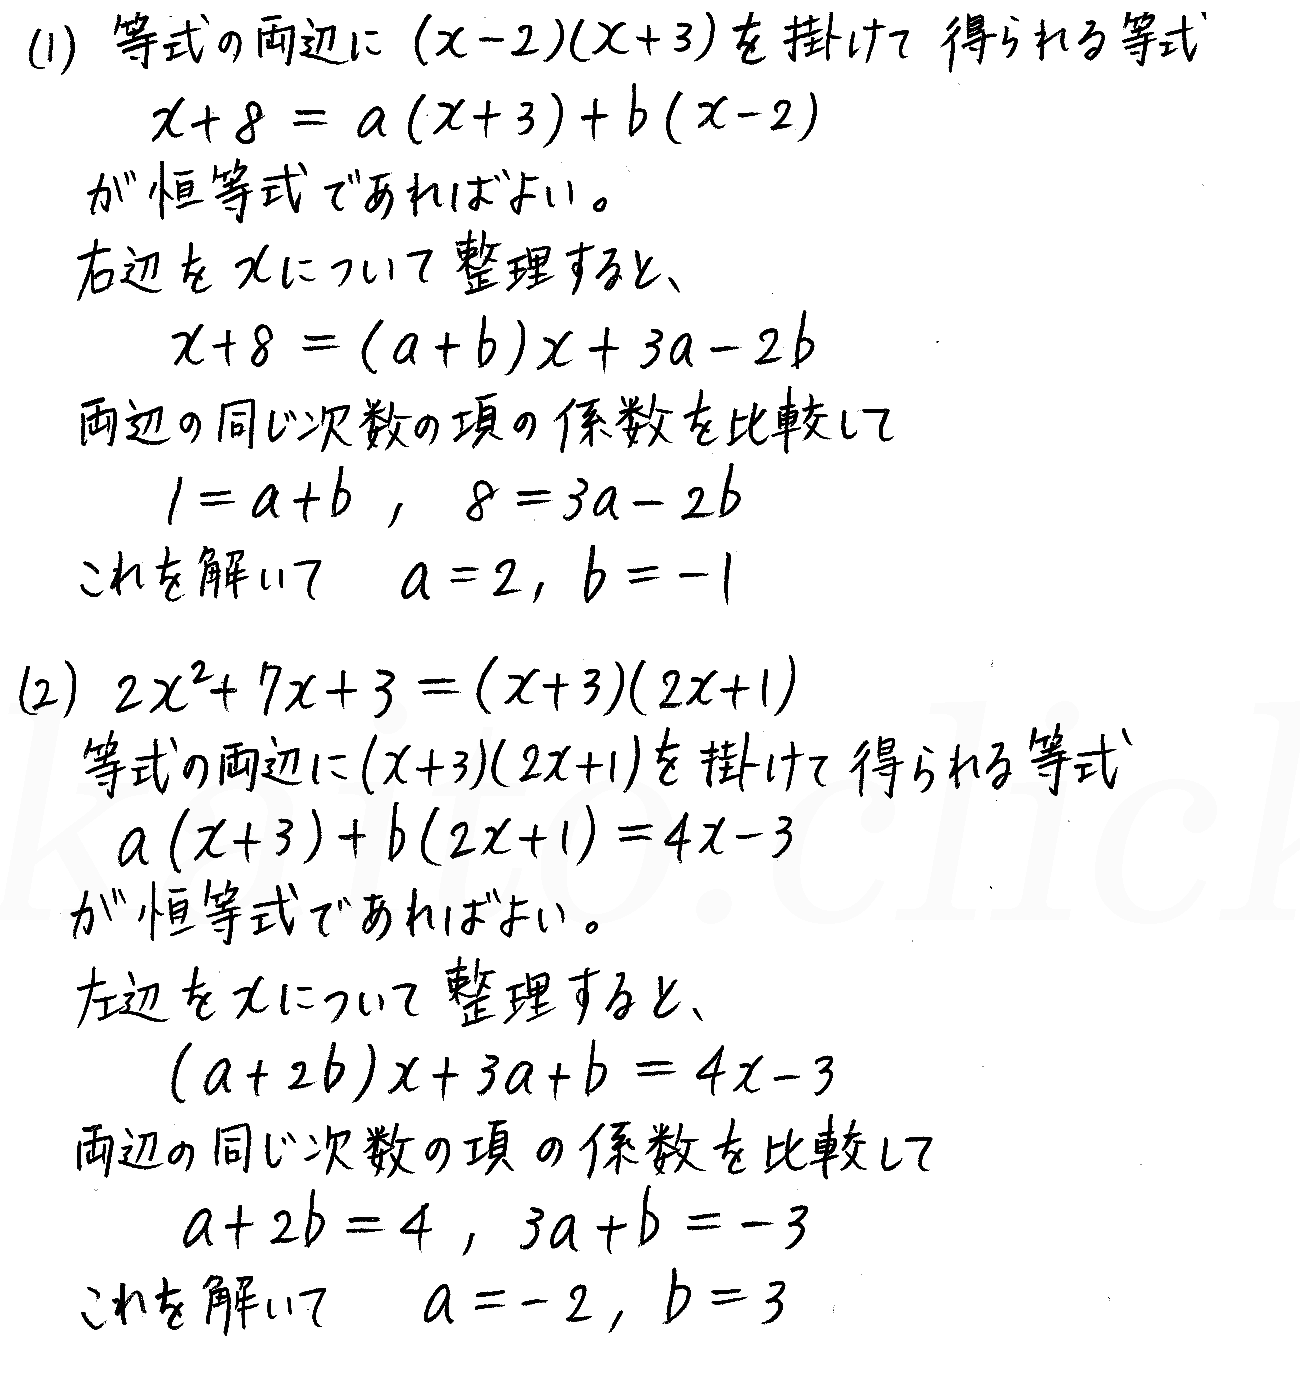 (1) 等式の両辺に (x-2)(x+3)を掛けて得られる等式
x+8 = a(x+3)+b(x-2)
が恒等式であればよい。
右辺をxについて整理すると、
x+8 = (a+b)x+3a-2b
両辺の同じ次数の項の係数を比較して
1=a+b , 8=3a-2b
これを解いて a=2, b=-1
(2) 2x²+7x+3=(x+3)(2x+1)
等式の両辺に(x+3)(2x+1)を掛けて得られる等式
a(x+3)+b(2x+1)=4x-3
が恒等式であればよい。
左辺をxについて整理すると、
(a+2b)x+3a+b=4x-3
両辺の同じ次数の項の係数を比較して
a+2b=4 , 3a+b=-3
これを解いて a=-2, b=3
kaito.click